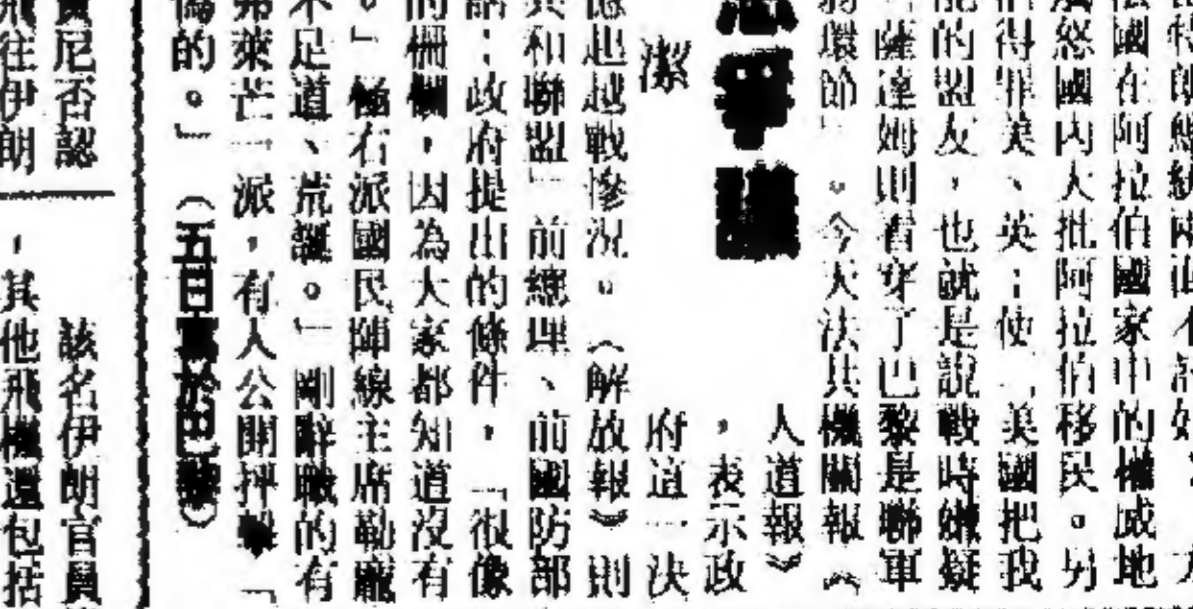 法國在阿拉伯國家中的權威地
怒國內大批阿拉伯移民。另
得罪美、英；使「美國把我
能的盟友，也就是說戰時嫌疑
薩達姆則看穿了巴黎是聯軍
弱環節」。今天法共機關報《
人道報》
，表示政
潔
府這一決
起越戰慘況。《解放報》則
共和聯盟」前總理、前國防部
話；政府提出的條件，「很像
的柵欄，因為大家都知道沒有
。」極右派國民陣線主席勒龐
不足道、荒誕。」剛辭職的有
弗萊芒一派，有人公開抨擊「
偽的。」（五日寫於巴黎）
尼否認
該名伊朗官員
飛往伊朗
，其他飛機還包括